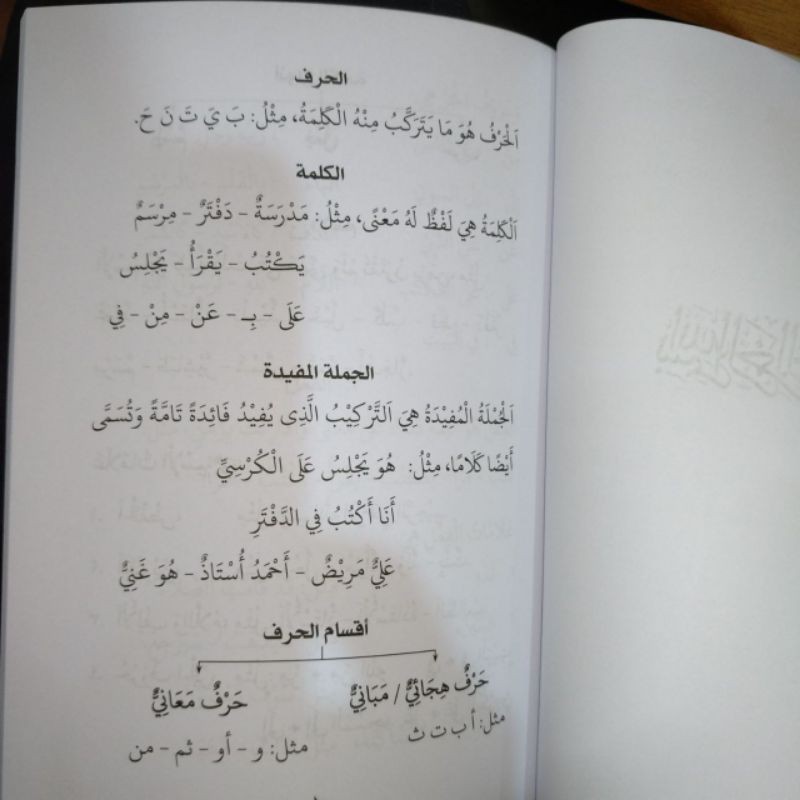 الحرف
اَلْحَرْفُ هُوَ مَا يَتَرَكَّبُ مِنْهُ الْكَلِمَةُ، مِثْلُ: بَ يَ تَ نَ حَ.
الكلمة
اَلْكَلِمَةُ هِيَ لَفْظٌ لَهُ مَعْنًى، مِثْلُ: مَدْرَسَةٌ - دَفْتَرٌ - مِرْسَمٌ
يَكْتُبُ - يَقْرَأُ - يَجْلِسُ
عَلَى - بِـ - عَنْ - مِنْ - فِي
الجملة المفيدة
اَلْجُمْلَةُ الْمُفِيْدَةُ هِيَ اَلتَّرْكِيْبُ الَّذِى يُفِيْدُ فَائِدَةً تَامَّةً وَتُسَمَّى
أَيْضًا كَلَامًا، مِثْلُ: هُوَ يَجْلِسُ عَلَى الْكُرْسِيِّ
أَنَا أَكْتُبُ فِي الدَّفْتَرِ
عَلِيٌّ مَرِيْضٌ - أَحْمَدُ أُسْتَاذٌ - هُوَ غَنِيٌّ
أقسام الحرف
حَرْفٌ هِجَائِيٌّ / مَبَانِيٌّ
حَرْفٌ مَعَانِيٌّ
مثل: أ ب ت ث
مثل: و - أو - ثم - من